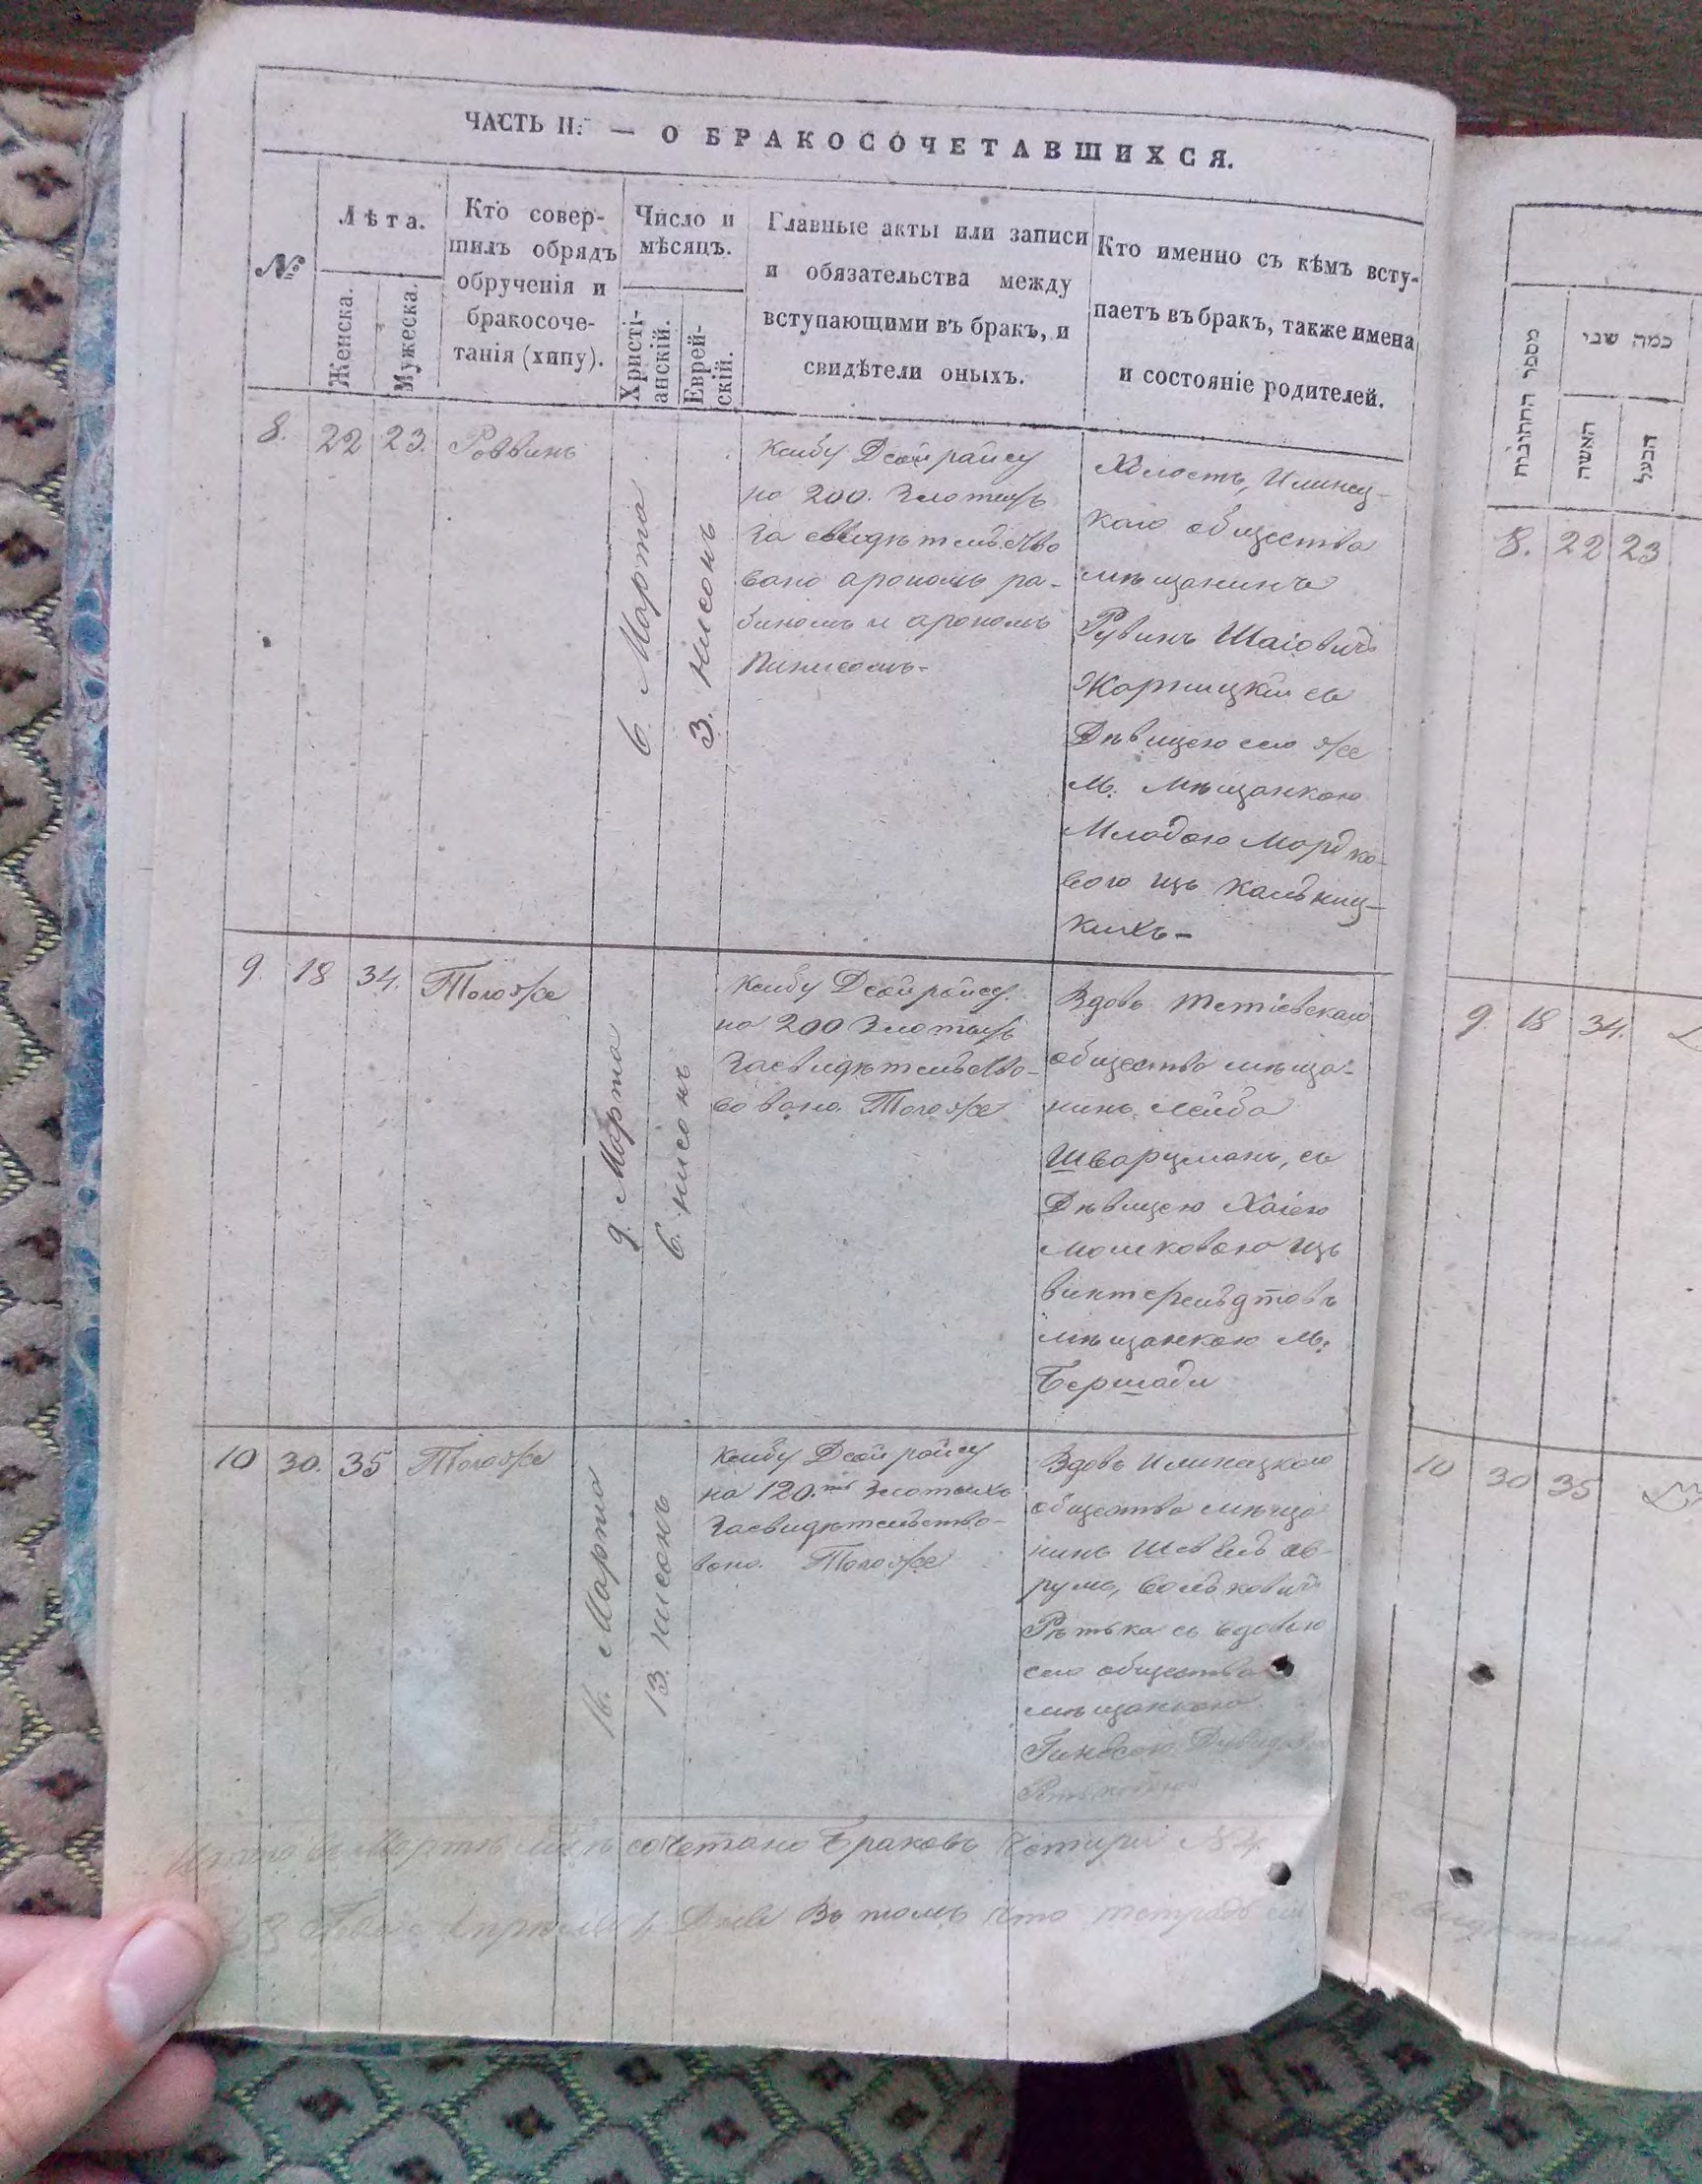 ЧАСТЬ II. — О БРАКОСОЧЕТАВШИХСЯ.
№
Лѣта.
Женска.
Мужеска.
Кто совер-
шилъ обрядъ
обрученія и
бракосоче-
танія (хипу).
Число и
мѣсяцъ.
Христі-
анскій.
Еврей-
скій.
Главные акты или записи
и обязательства между
вступающими въ бракъ, и
свидѣтели оныхъ.
Кто именно съ кѣмъ всту-
паетъ въ бракъ, также имена
и состояніе родителей.
8. 22 23. Раввинъ
6. Марта
3. нисонъ
Ксибу Дсойрайсу
на 200. Злотыхъ
За свидѣтельство
вано арономъ ра-
биномъ и арономъ
Пинисомъ-
Холостъ, Илинец-
каго общества
мѣщанинъ
Рувинъ Шаіовичъ
Жорницкій съ
Дѣвицею сего же
м. мѣщанкою
Младою Мордко-
вою изъ Кальниц-
кихъ-
9. 18 34. Тогоже
9. Марта
6. нисонъ
Ксибу Дсойройсу.
на 200 Злотыхъ
Засвидѣтельство-
вовано. Тогоже
Вдовъ Тетіевскаго
общества мѣща-
нинъ Лейба
Шварцманъ, съ
Дѣвицею Хаіею
мошковою изъ
винтерельдтовъ
мѣщанкою м.
Бершади
10 30. 35 Тогоже
16. Марта
13. нисонъ
Ксибу Дсой ройсу
на 120. Злотыхъ
Засвидѣтельство-
вано. Тогоже
Вдовъ Илинецкого
общества мѣща
нинъ Шевель ав-
румъ, Вольковичъ
Рѣтька съ вдовою
сего общества
мѣщанкою
Гинесею
сочетано Браковъ Четыри № 4.
Въ томъ что тетрадь
מספר החתונות
כמה שני
האשה
הבעל
8. 22 23
9. 18 34.
10 30 35